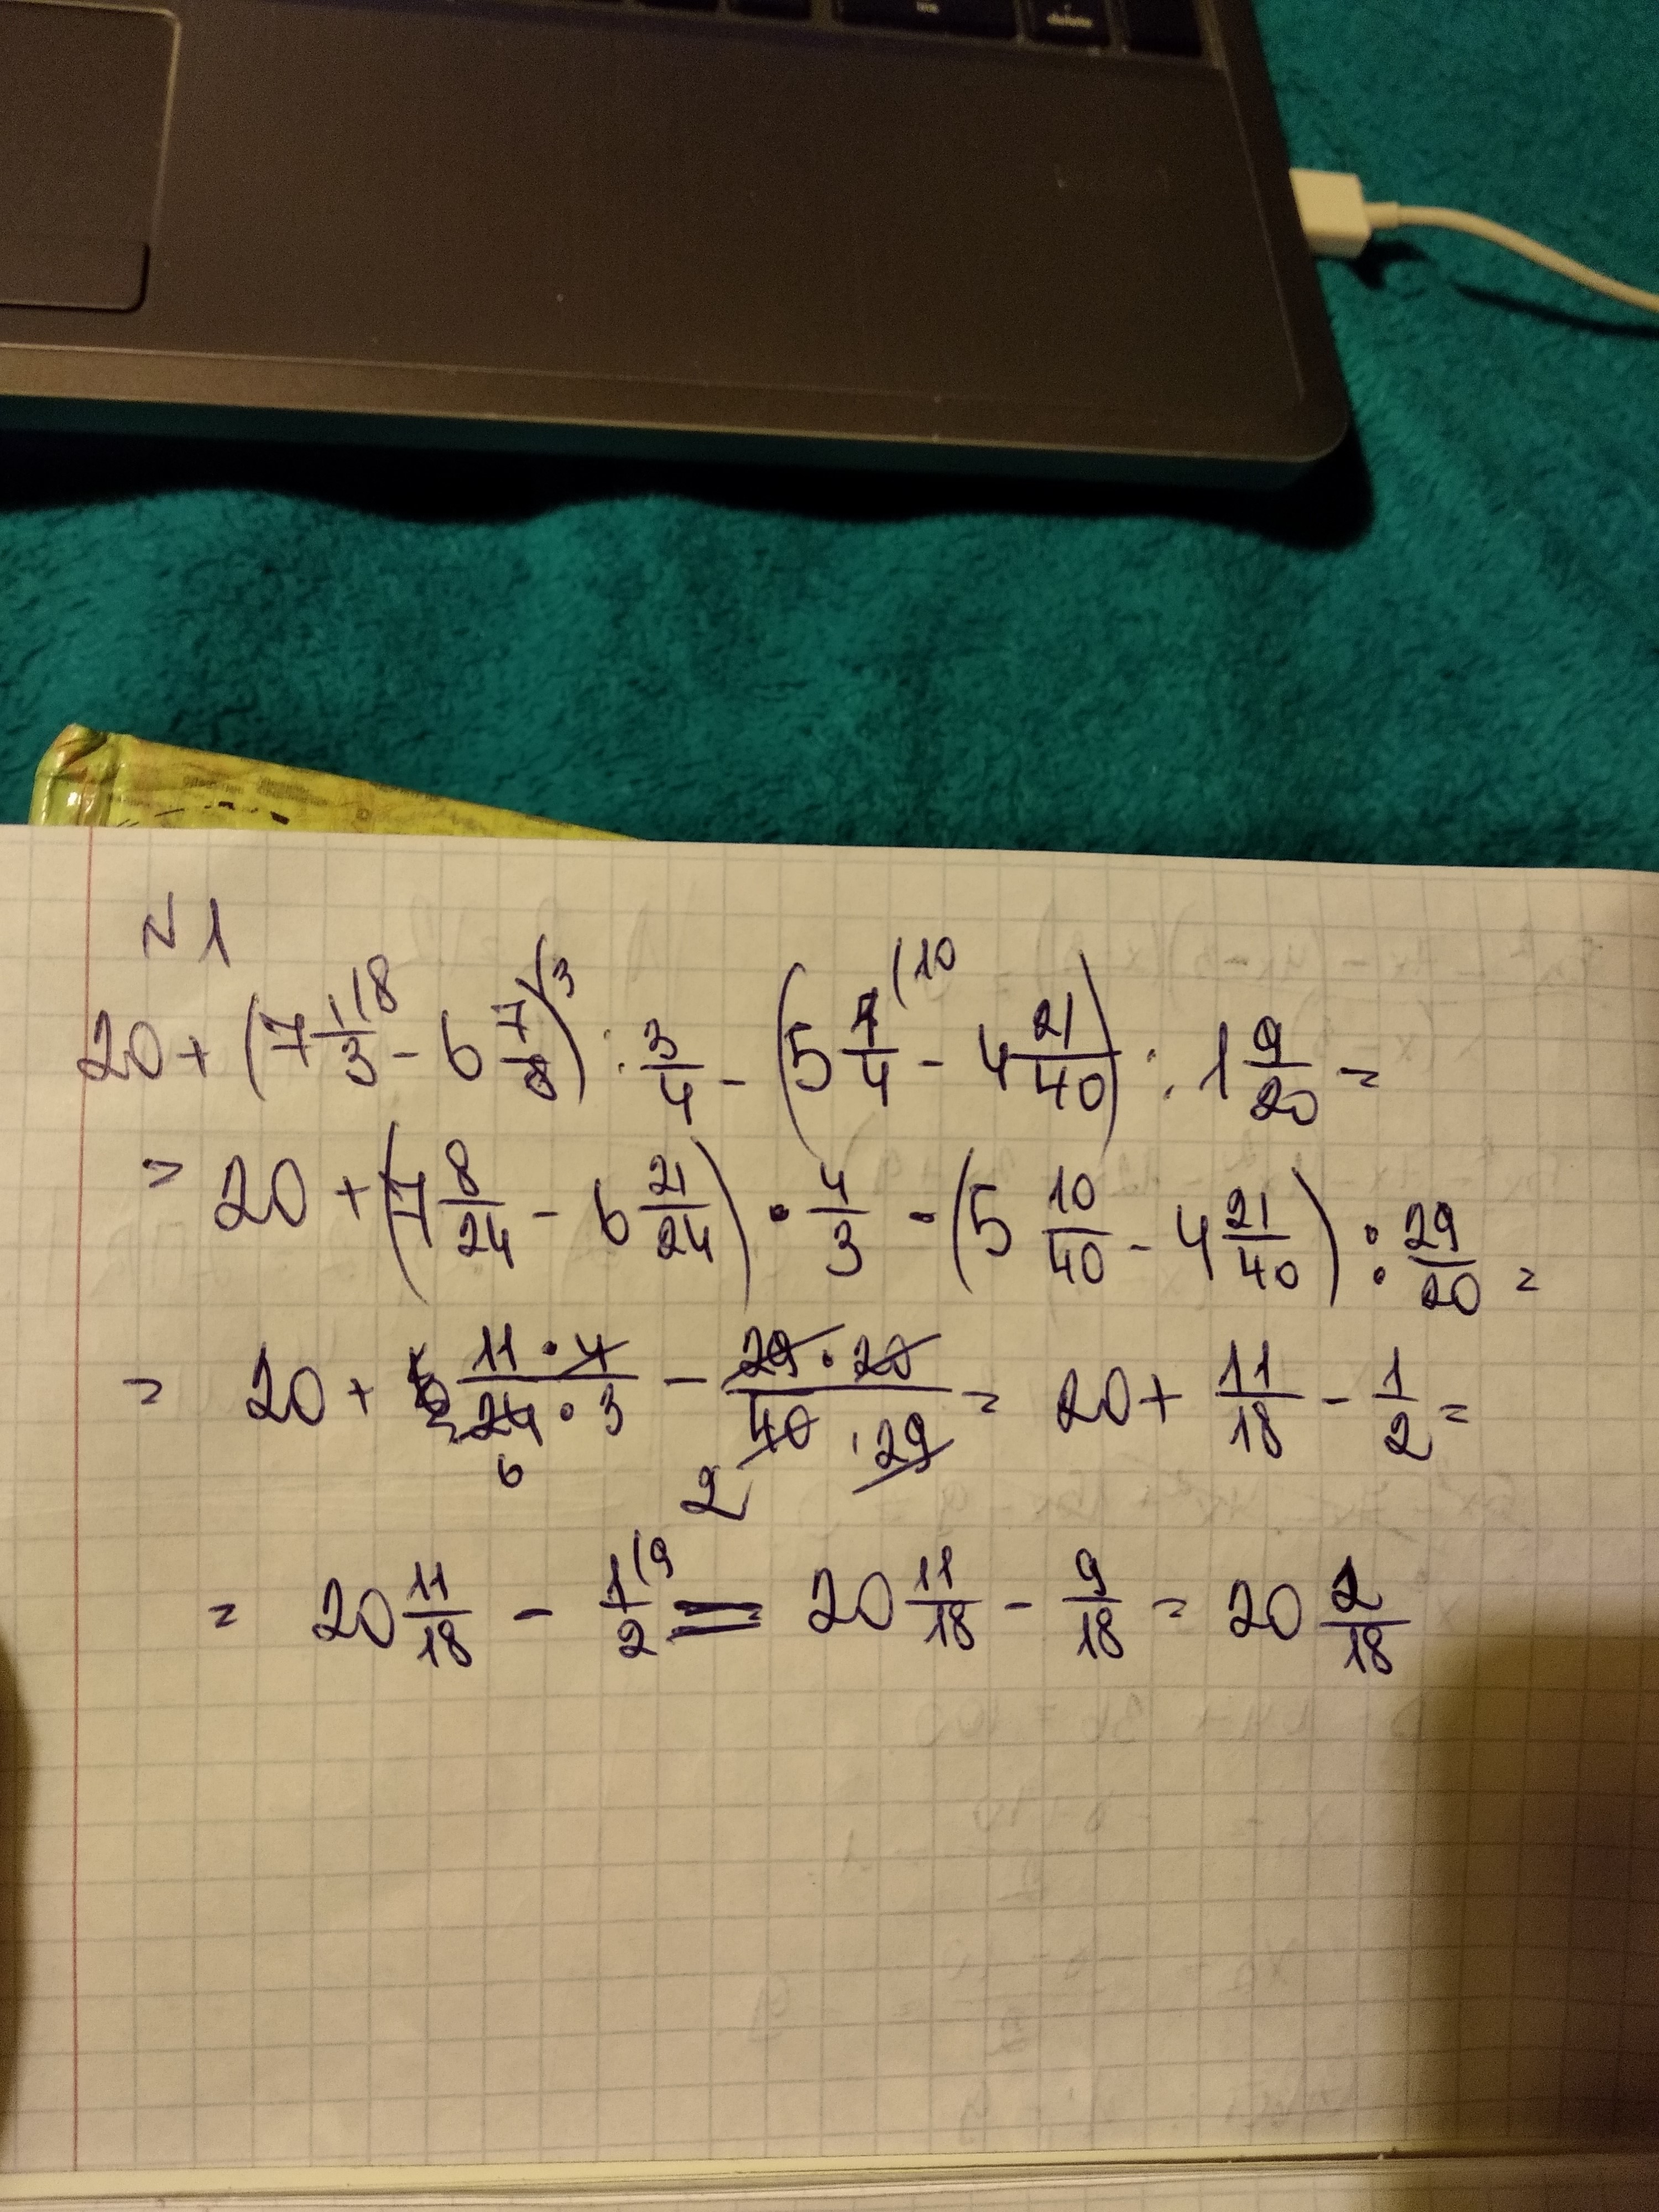 delete
N 1
20 + (7 1/3 (8 - 6 7/8 (3) : 3/4 - (5 1/4 (10 - 4 21/40) : 1 9/20 =
= 20 + (7 8/24 - 6 21/24) · 4/3 - (5 10/40 - 4 21/40) : 29/20 =
= 20 + 11·4/24·3 - 29·20/40·29 = 20 + 11/18 - 1/2 =
6
2
= 20 11/18 - 1/2 (9 = 20 11/18 - 9/18 = 20 2/18